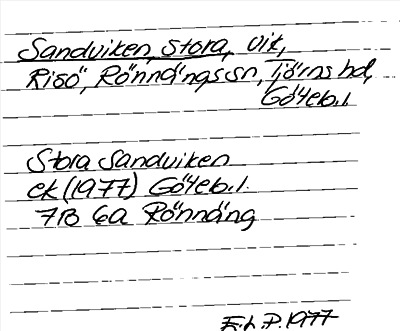 Sandviken, Stora, vik,
Risö, Rönnängs sn, Tjörns hd,
Göteb. l.
Stora Sandviken
ek (1977) Göteb. l.
7B 6a Rönnäng
E. L. P. 1977